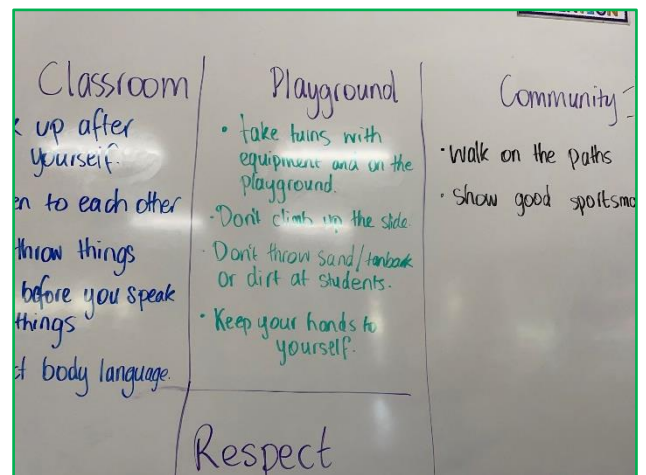 Classroom
up after
yourself.
to each other
throw things
before you speak
things
body language.
Playground
• take turns with
equipment and on the
playground.
• Don't climb up the slide.
• Don't throw sand/tanbark
or dirt at students.
• Keep your hands to
yourself.
Community
• Walk on the paths
• Show good
Respect